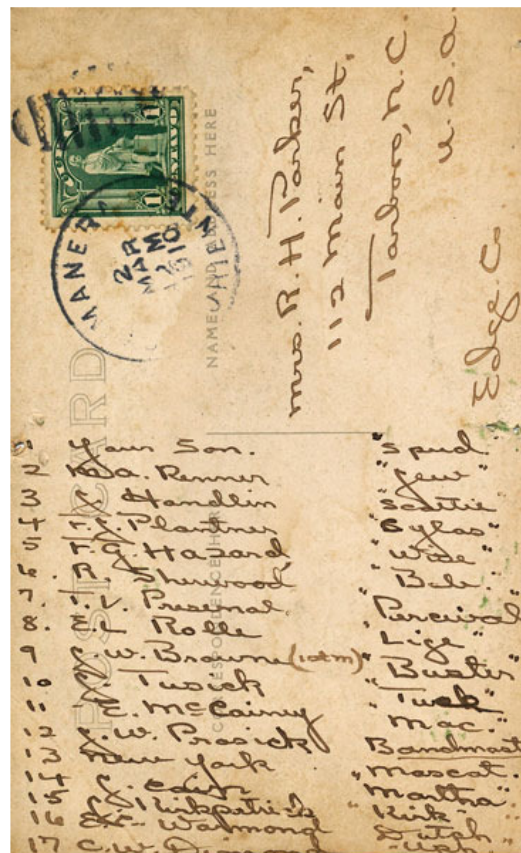 MANERA
2
MAR
M
1910
POST CARD
NAME AND ADDRESS HERE
CORRESPONDENCE HERE
Mrs. R. H. Parker,
112 Main St.
Tarboro, N.C.
U.S.A.
Edge. Co
1 Your Son. "Spud"
2 M.A. Renner "Jew"
3 J. Handlin "Scottie"
4 F. J. Plantner "Sylas"
5 F. G. Hazard "Wide"
6. R. Sherwood "Babe"
7. Presonal "Percival"
8. E. L Rolle "Lige"
9 J. W. Browne (1st m) "Buster"
10 J. Tusick "Tuck"
11 E. McCairney "Mac."
12 J. W. Prosick Bandmast
13 New York "Mascot."
14 J. Cain "Martha"
15 J. Kirkpatrick "Kirk"
16 Warmong "Dutch
17 C. W.